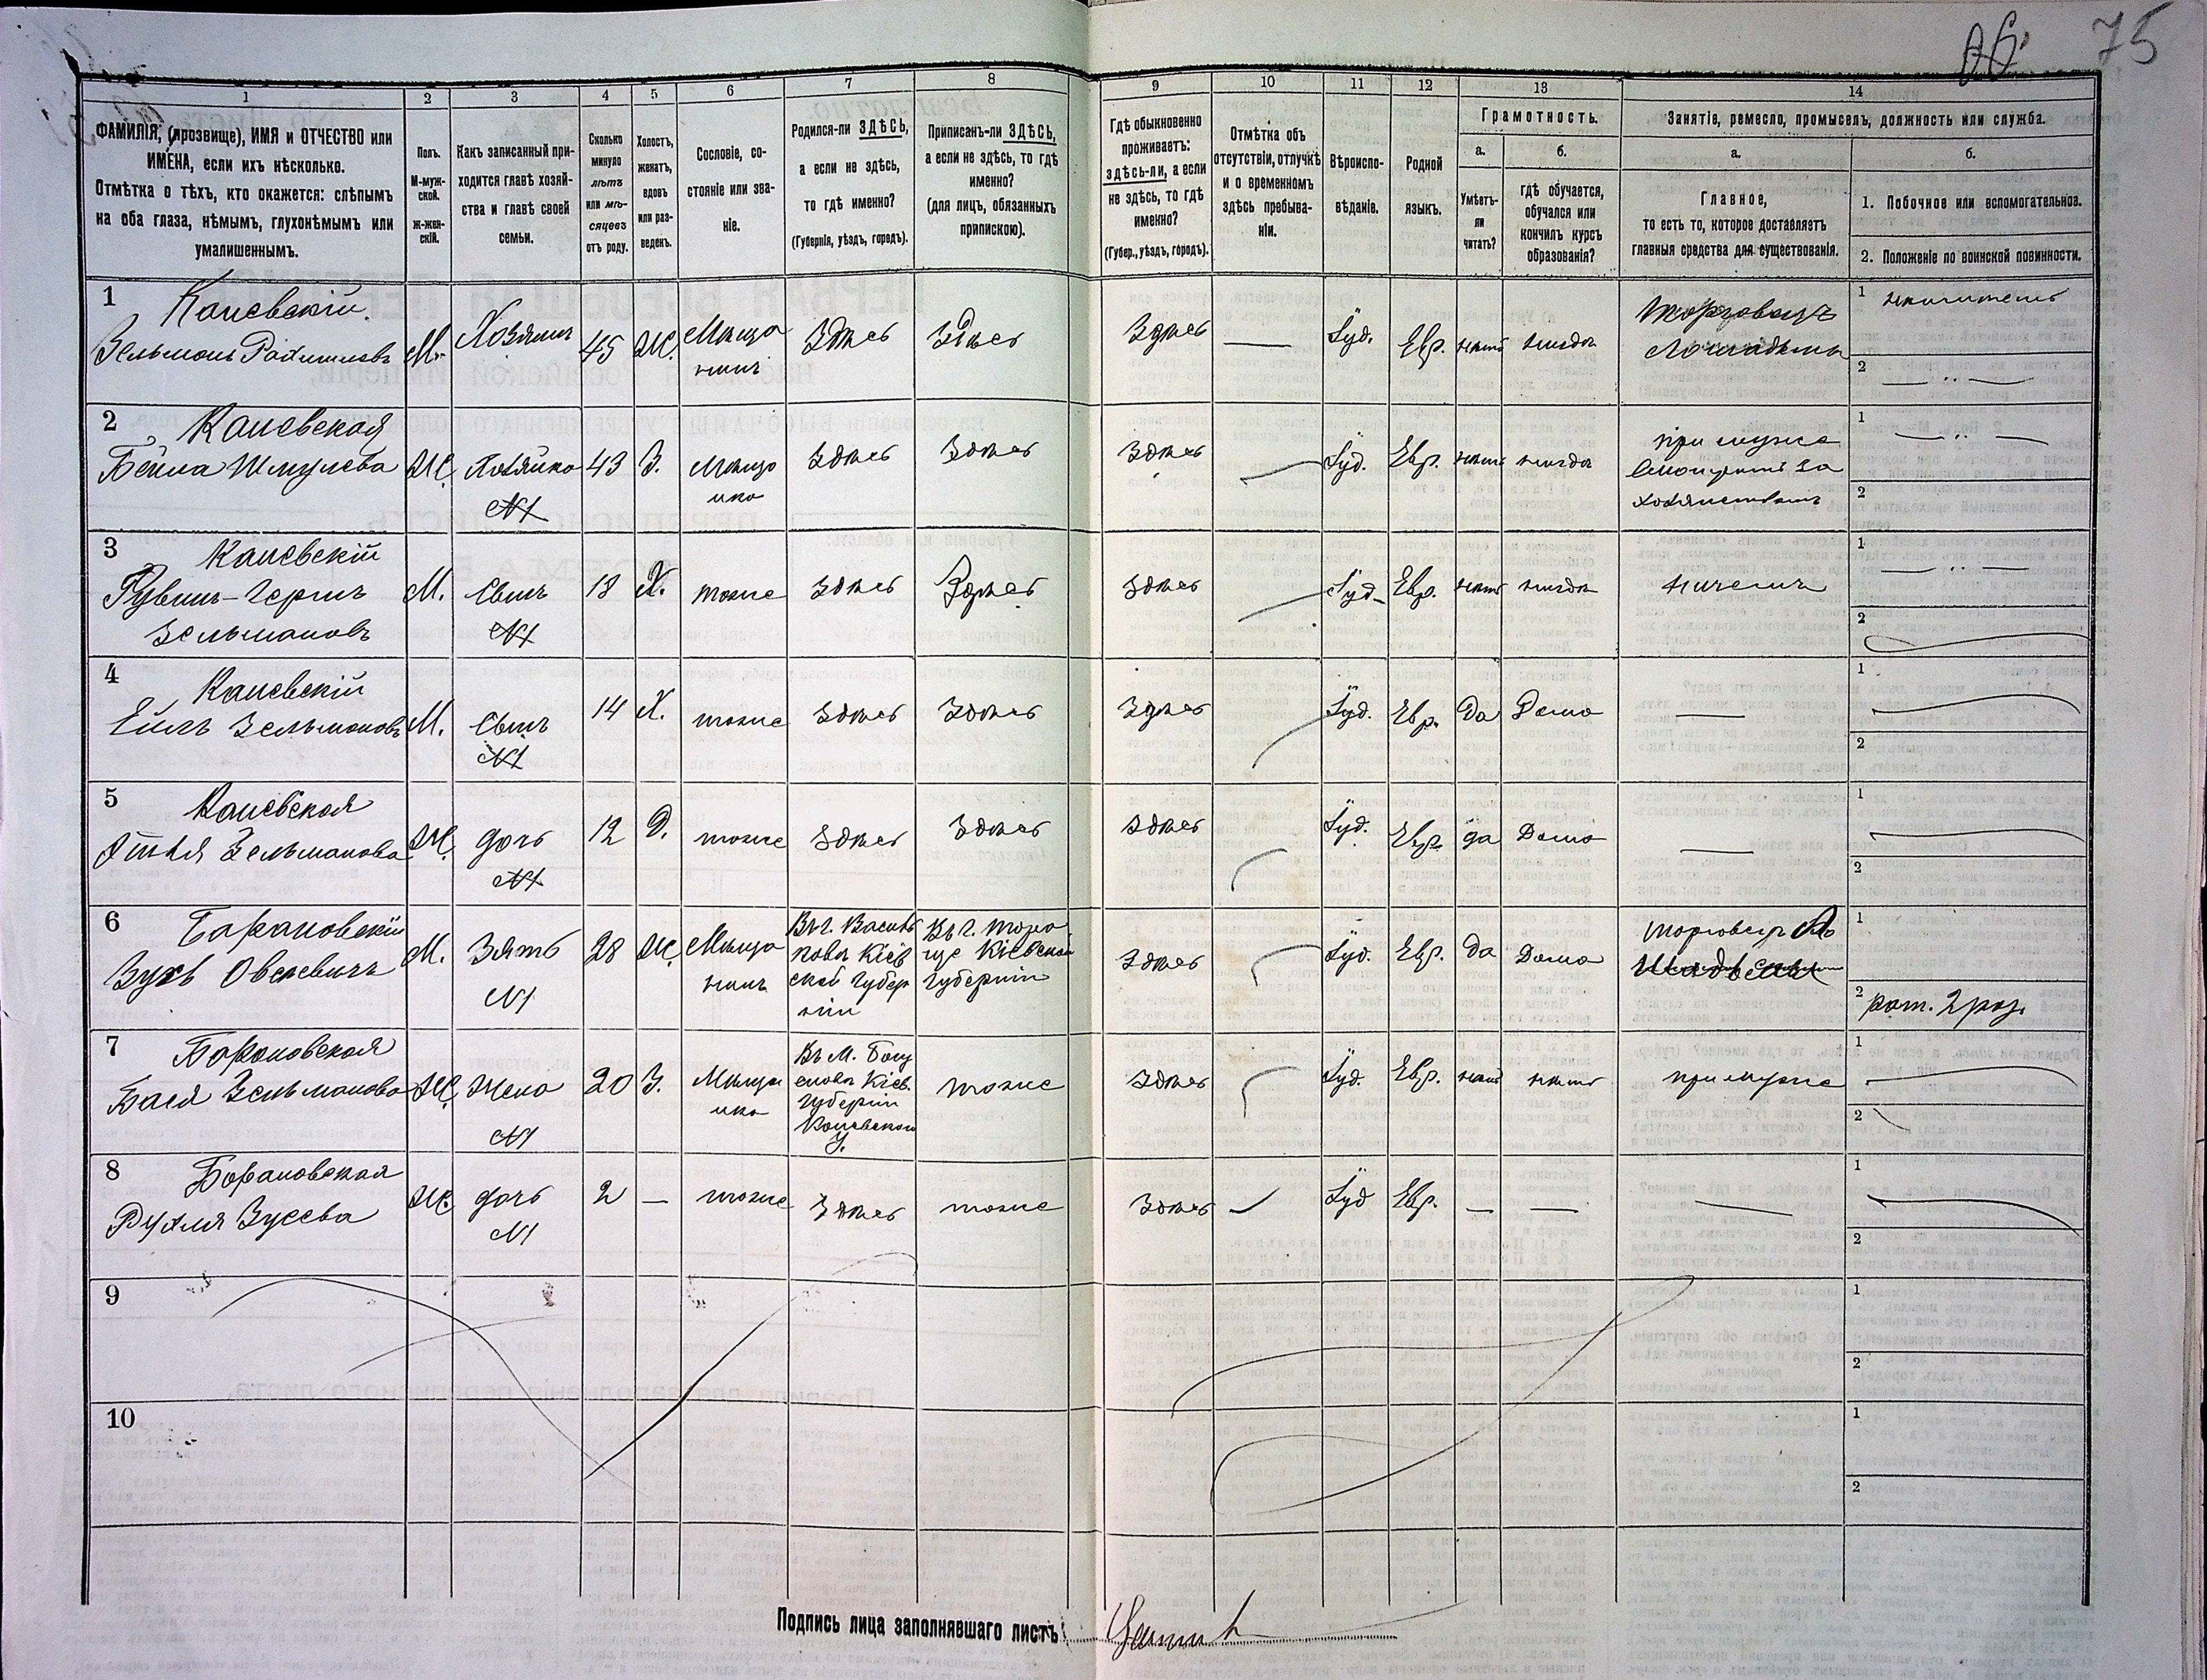 Об. 75
1 2 3 4 5 6 7 8 9 10 11 12 13 14
ФАМИЛІЯ, (прозвище), ИМЯ и ОТЧЕСТВО или
ИМЕНА, если ихъ нѣсколько.
Отмѣтка о тѣхъ, кто окажется: слѣпымъ
на оба глаза, нѣмымъ, глухонѣмымъ или
умалишеннымъ.
Полъ.
М-муж-
ской.
ж-жен-
скій.
Какъ записанный при-
ходится главѣ хозяй-
ства и главѣ своей
семьи.
Сколько
минуло
лѣтъ
или мѣ-
сяцевъ
отъ роду.
Холостъ,
женатъ,
вдовъ
или раз-
веденъ.
Сословіе, со-
стояніе или зва-
ніе.
Родился-ли ЗДѢСЬ,
а если не здѣсь,
то гдѣ именно?
(Губернія, уѣздъ, городъ).
Приписанъ-ли ЗДѢСЬ,
а если не здѣсь, то гдѣ
именно?
(для лицъ, обязанныхъ
припискою).
Гдѣ обыкновенно
проживаетъ:
здѣсь-ли, а если
не здѣсь, то гдѣ
именно?
(Губер., уѣздъ, городъ).
Отмѣтка объ
отсутствіи, отлучкѣ
и о временномъ
здѣсь пребыва-
ніи.
Вѣроиспо-
вѣданіе.
Родной
языкъ.
Грамотность.
а.
Умѣетъ-
ли
читать?
б.
гдѣ обучается,
обучался или
кончилъ курсъ
образованія?
Занятіе, ремесло, промыселъ, должность или служба.
а.
Главное,
то есть то, которое доставляетъ
главныя средства для существованія.
б.
1. Побочное или вспомогательное.
2. Положеніе по воинской повинности.
1 Каневскій
Зельманъ М. Хозяинъ 45 Ж. Мѣща
нинъ Здѣсь Здѣсь Здѣсь — Іуд. Евр. нѣтъ нигдѣ Торговецъ
Лошадьми 1
2 — " —
2 Каневская
Бейла Шмулева Ж. Хозяйка 43 З. Мѣща
нка Здѣсь Здѣсь Здѣсь Іуд. Евр. нѣтъ нигдѣ при мужѣ
смотритъ за
хозяйствомъ 1 — " —
№1 2
3 Каневскій
Рувинъ- М. Сынъ 18 Х. тоже Здѣсь Здѣсь Здѣсь Іуд. Евр. нѣтъ нигдѣ 1 — " —
Зельмановъ №1 2
4 Каневскій
Зельмановъ М. Сынъ 14 Х. тоже Здѣсь Здѣсь Здѣсь Іуд. Евр. Да Дома — 1
№1 2
5 Каневская
Зельманова Ж. дочь 12 Д. тоже Здѣсь Здѣсь Здѣсь Іуд. Евр. да Дома — 1
№1 2
6 Барановскій
М. Зять 28 Ж. Мѣща
нинъ Въ г. Василь
ковѣ Кіев
ской Губер
ніи Въ г. Тара
ще Кіевской
губерніи Здѣсь Іуд. Евр. Да Дома торговецъ 1
№1 2 рат. 2 раз.
7 Барановская
Бася Зельманова Ж. Жена 20 З. Мѣща
нка Въ М. Богу
славѣ Кіев.
Губерніи
Каневскаго
У. тоже Здѣсь Іуд. Евр. нѣтъ нѣтъ при мужѣ 1
№1 2
8 Барановская
Рухля Зусева Ж. дочь 2 — тоже Здѣсь тоже Здѣсь Іуд Евр. — — — 1
№1 2
9 1
2
10 1
2
Подпись лица заполнявшаго листъ: